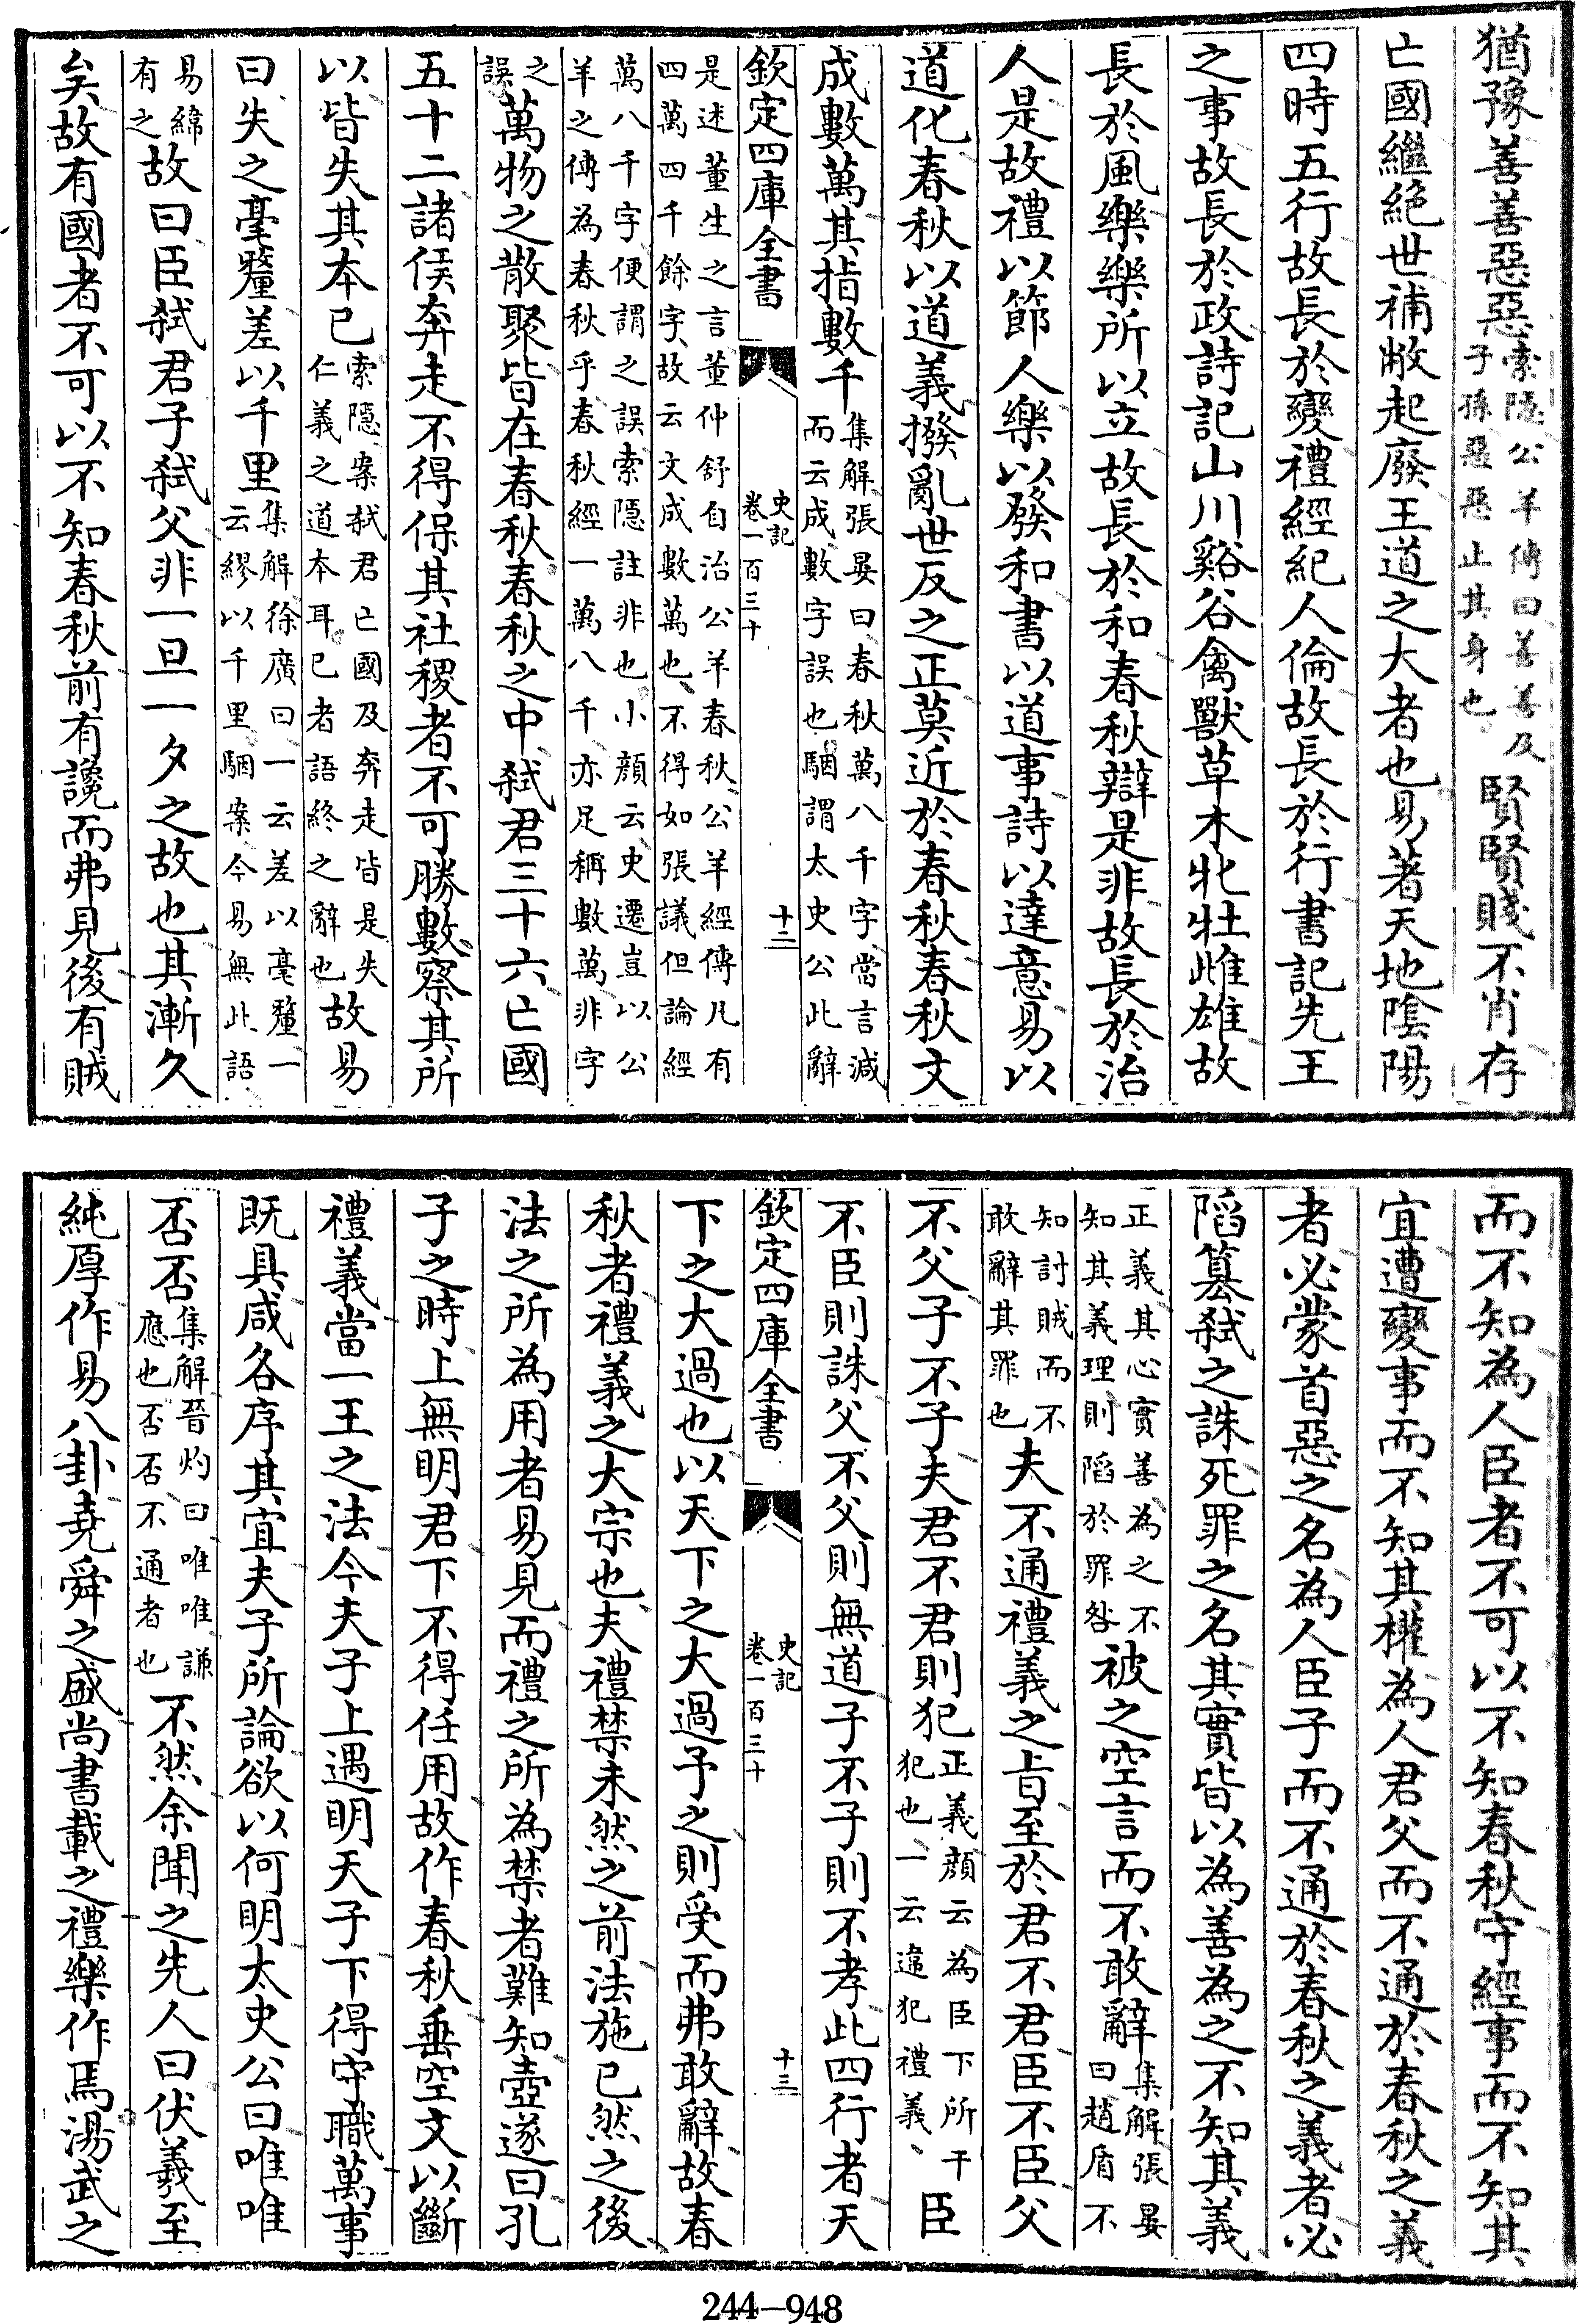 猶豫善善惡惡索隠公羊傳曰善善及子孫惡惡止其身也賢賢賤不肖存
亡國繼絶世補敝起廢王道之大者也易著天地陰陽
四時五行故長於變禮經紀人倫故長於行書記先王
之事故長於政詩記山川谿谷禽獸草木牝牡雌雄故
長於風樂樂所以立故長於和春秋辯是非故長於治
人是故禮以節人樂以發和書以道事詩以達意易以
道化春秋以道義撥亂世反之正莫近於春秋春秋文
成數萬其指數千集解張晏曰春秋萬八千字當言減而云成數字誤也駰謂太史公此辭
欽定四庫全書 史記卷一百三十 十二
是述董生之言董仲舒自治公羊春秋公羊經傳凡有四萬四千餘字故云文成數萬也不得如張議但論經
萬八千字便謂之誤索隠註非也小顔云史遷豈以公羊之傳為春秋乎春秋經一萬八千亦足稱數萬非字
之誤萬物之散聚皆在春秋春秋之中弑君三十六亡國
五十二諸侯奔走不得保其社稷者不可勝數察其所
以皆失其本已索隠案弑君亡國及奔走皆是失仁義之道本耳已者語終之辭也故易
曰失之毫釐差以千里集解徐廣曰一云差以毫釐一云繆以千里駰案今易無此語
易緯有之故曰臣弑君子弑父非一旦一夕之故也其漸久
矣故有國者不可以不知春秋前有讒而弗見後有賊
而不知為人臣者不可以不知春秋守經事而不知其
宜遭變事而不知其權為人君父而不通於春秋之義
者必蒙首惡之名為人臣子而不通於春秋之義者必
陷簒弑之誅死罪之名其實皆以為善為之不知其義
正義其心實善為之不知其義理則陷於罪咎被之空言而不敢辭集解張晏曰趙盾不
知討賊而不敢辭其罪也夫不通禮義之㫖至於君不君臣不臣父
不父子不子夫君不君則犯正義顔云為臣下所干犯也一云違犯禮義臣
不臣則誅父不父則無道子不子則不孝此四行者天
欽定四庫全書 史記卷一百三十 十三
下之大過也以天下之大過予之則受而弗敢辭故春
秋者禮義之大宗也夫禮禁未然之前法施已然之後
法之所為用者易見而禮之所為禁者難知壺遂曰孔
子之時上無明君下不得任用故作春秋垂空文以斷
禮義當一王之法今夫子上遇明天子下得守職萬事
既具咸各序其宜夫子所論欲以何明太史公曰唯唯
否否集解晉灼曰唯唯謙應也否否不通者也不然余聞之先人曰伏羲至
純厚作易八卦堯舜之盛尚書載之禮樂作焉湯武之
244—948